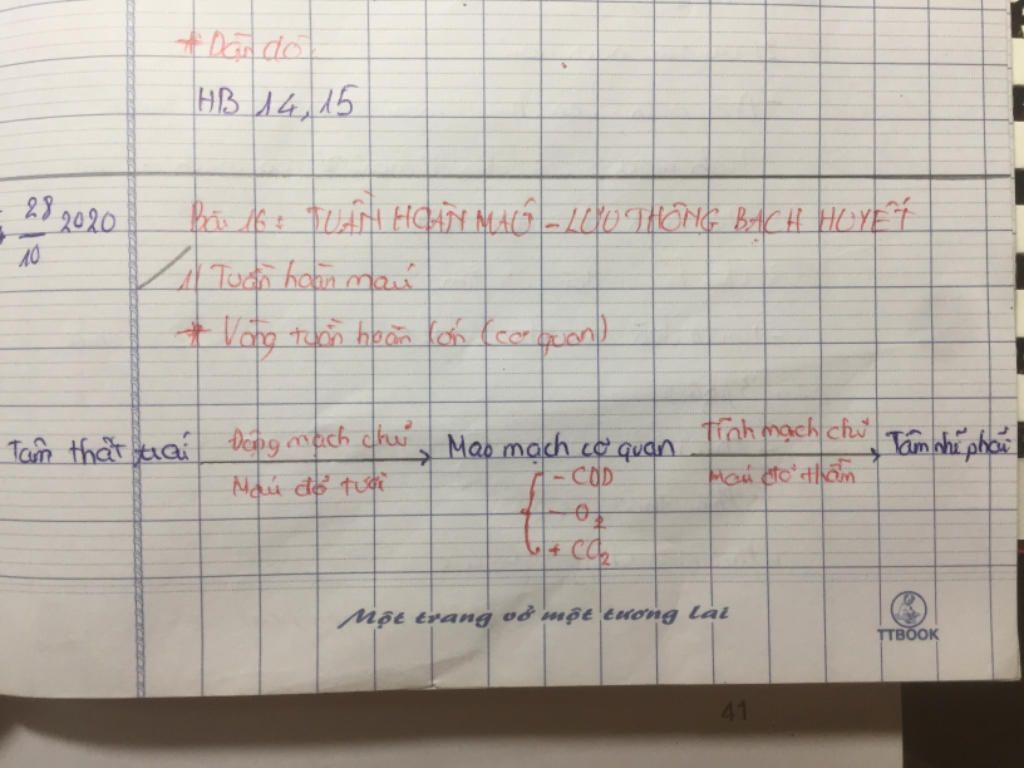 * Dặn dò:
HB 14, 15
28/10 2020
Bài 16: TUẦN HOÀN MÁU - LƯU THÔNG BẠCH HUYẾT
1) Tuần hoàn máu
* Vòng tuần hoàn lớn (cơ quan)
Tâm thất trái Động mạch chủ Mao mạch cơ quan Tĩnh mạch chủ Tâm nhĩ phải
Máu đỏ tươi Máu đỏ thẫm
- COD
- O₂
+ CO₂
Một trang vở một tương lai
TTBOOK
41